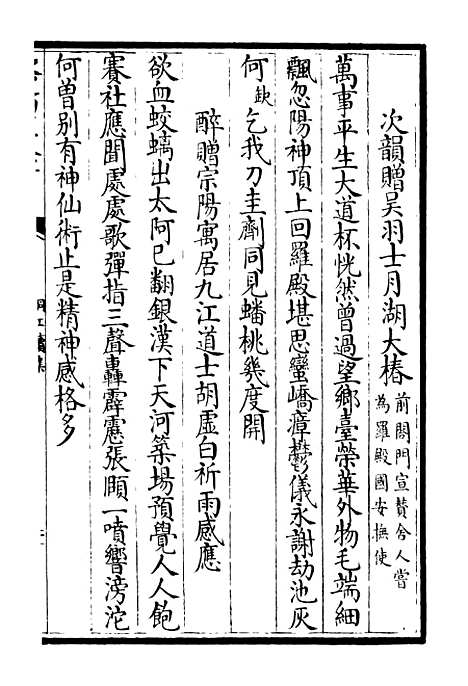 次韻贈吴羽士月湖大椿前閤門宣賛舍人嘗為羅殿國安撫使
萬事平生大道杯恍然曾過望鄉臺榮華外物毛端細
飄忽陽神頂上回羅殿堪思蠻嶠瘴鬱儀永謝劫池灰
何缺乞我刀圭劑同見蟠桃幾度開
醉贈宗陽寓居九江道士胡虚白祈雨感應
欲血蛟螭出太阿已翻銀漢下天河築場預覺人人飽
賽社應聞處處歌彈指三聲轟霹靂張頤一噴響滂沱
何曾别有神仙術止是精神感格多
桐江續集